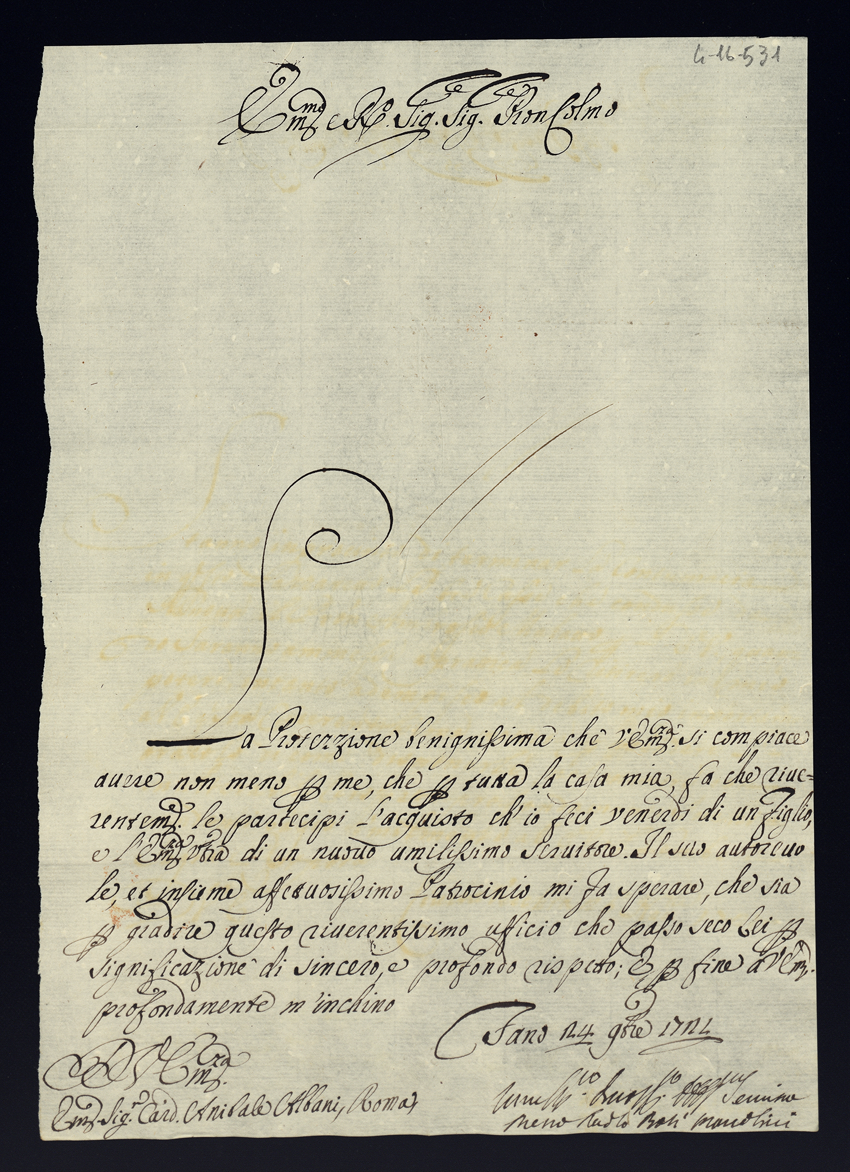 4-16-531
Em.mo e R.mo Sig.re Sig.re Pron Colmo
La Protezzione benignissima che V Em.za si compiace
avere non meno ꝑ me, che ꝑ tutta la casa mia, fa che rive=
rentem.te le partecipi l'acquisto ch'io feci venerdi di un figlio,
e l'Em.za vrã di un nuovo umilissimo servitore. Il suo autorevo
le, et insieme affettuosissimo Patrocinio mi fa sperare, che sia
ꝑ gradire questo riverentissimo ufficio che passo seco Lei ꝑ
significazione di sincero, e profondo rispetto; E ꝑ fine a V Em.za
profondamente m'inchino
Fano 24 9bre 1724
D V Em.za
Em.mo Sig.r Card. Anibale Albani, Roma
Servitore